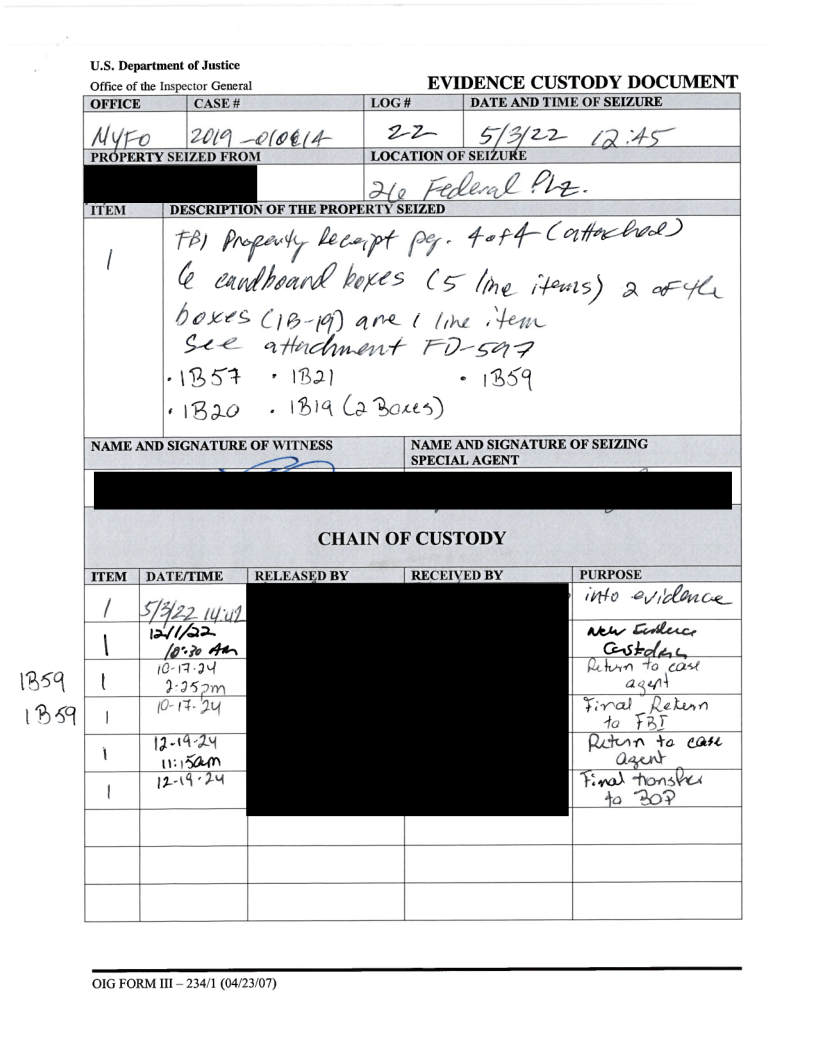 U.S. Department of Justice
Office of the Inspector General
EVIDENCE CUSTODY DOCUMENT
OFFICE CASE # LOG # DATE AND TIME OF SEIZURE
NYFO 22 5/3/22 12:45
PROPERTY SEIZED FROM LOCATION OF SEIZURE
26 Federal Plz.
ITEM DESCRIPTION OF THE PROPERTY SEIZED
1
FBI Property Receipt pg. 4 of 4 (attached)
6 cardboard boxes (5 line items) 2 of the
boxes (1B-19) are 1 line item
See attachment FD-597
• 1B57 • 1B21 • 1B59
• 1B20 • 1B19 (2 Boxes)
NAME AND SIGNATURE OF WITNESS
NAME AND SIGNATURE OF SEIZING
SPECIAL AGENT
CHAIN OF CUSTODY
ITEM DATE/TIME RELEASED BY RECEIVED BY PURPOSE
1 5/3/22 into evidence
1 12/1/22 10:30 Am New Evidence
1B59 1 10-17-24 2:25pm Return to case agent
1B59 1 10-17-24 Final Return to FBI
1 12-19-24 11:15am Return to case agent
1 12-19-24 Final transfer to BOP
OIG FORM III – 234/1 (04/23/07)